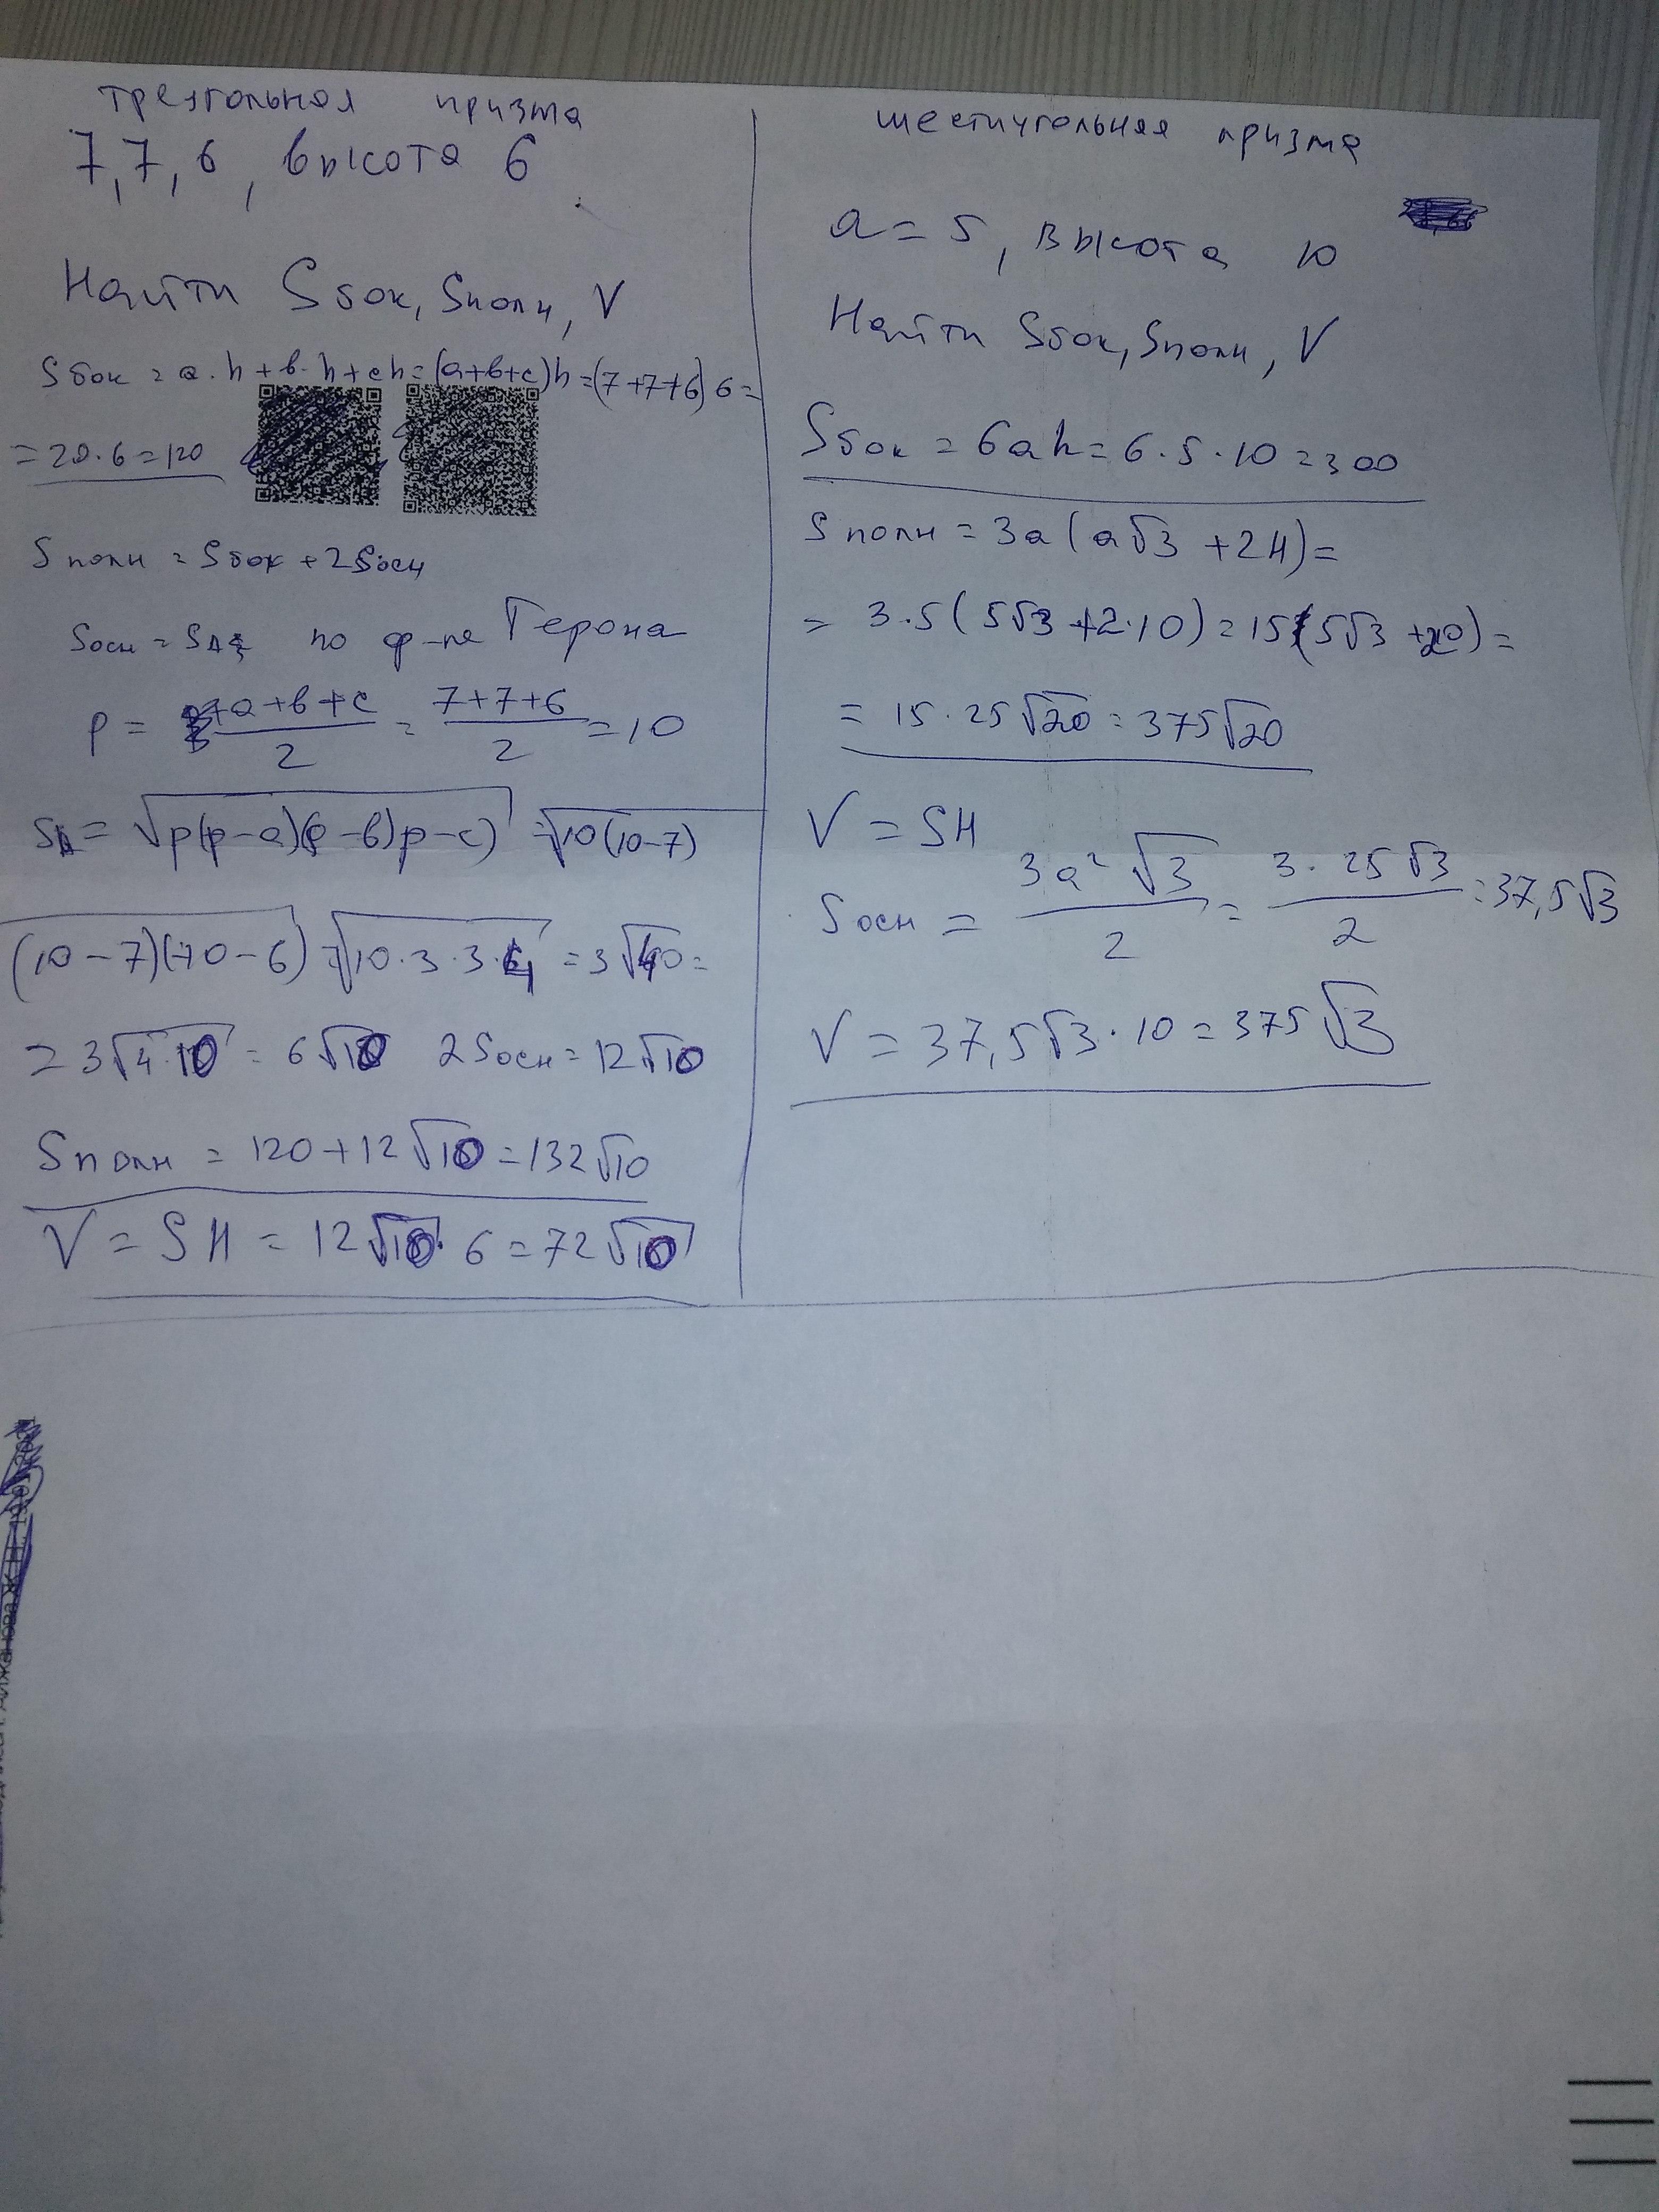 треугольная призма
7, 7, 6, высота 6
Найти Sбок, Sполн, V
Sбок = a·h + b·h + ch = (a+b+c)h = (7+7+6) 6 =
= 20·6 = 120
Sполн = Sбок + 2Sосн
Sосн = S∆ по ф-ле Герона
p = a+b+c / 2 = 7+7+6 / 2 = 10
S∆ = √p(p-a)(p-b)p-c) = √10(10-7)
(10-7)(10-6) = √10·3·3·4 = 3√40 =
= 3√4·10 = 6√10 2Sосн = 12√10
Sполн = 120+12√10 = 132√10
V = SH = 12√10·6 = 72√10
шестиугольная призма
a = 5, высота 10
Найти Sбок, Sполн, V
Sбок = 6ah = 6·5·10 = 300
Sполн = 3a(a√3 + 2H) =
= 3·5(5√3 + 2·10) = 15(5√3 + 20) =
= 15·25√20 = 375√20
V = SH
Sосн = 3a²√3 / 2 = 3·25√3 / 2 = 37,5√3
V = 37,5√3·10 = 375√3